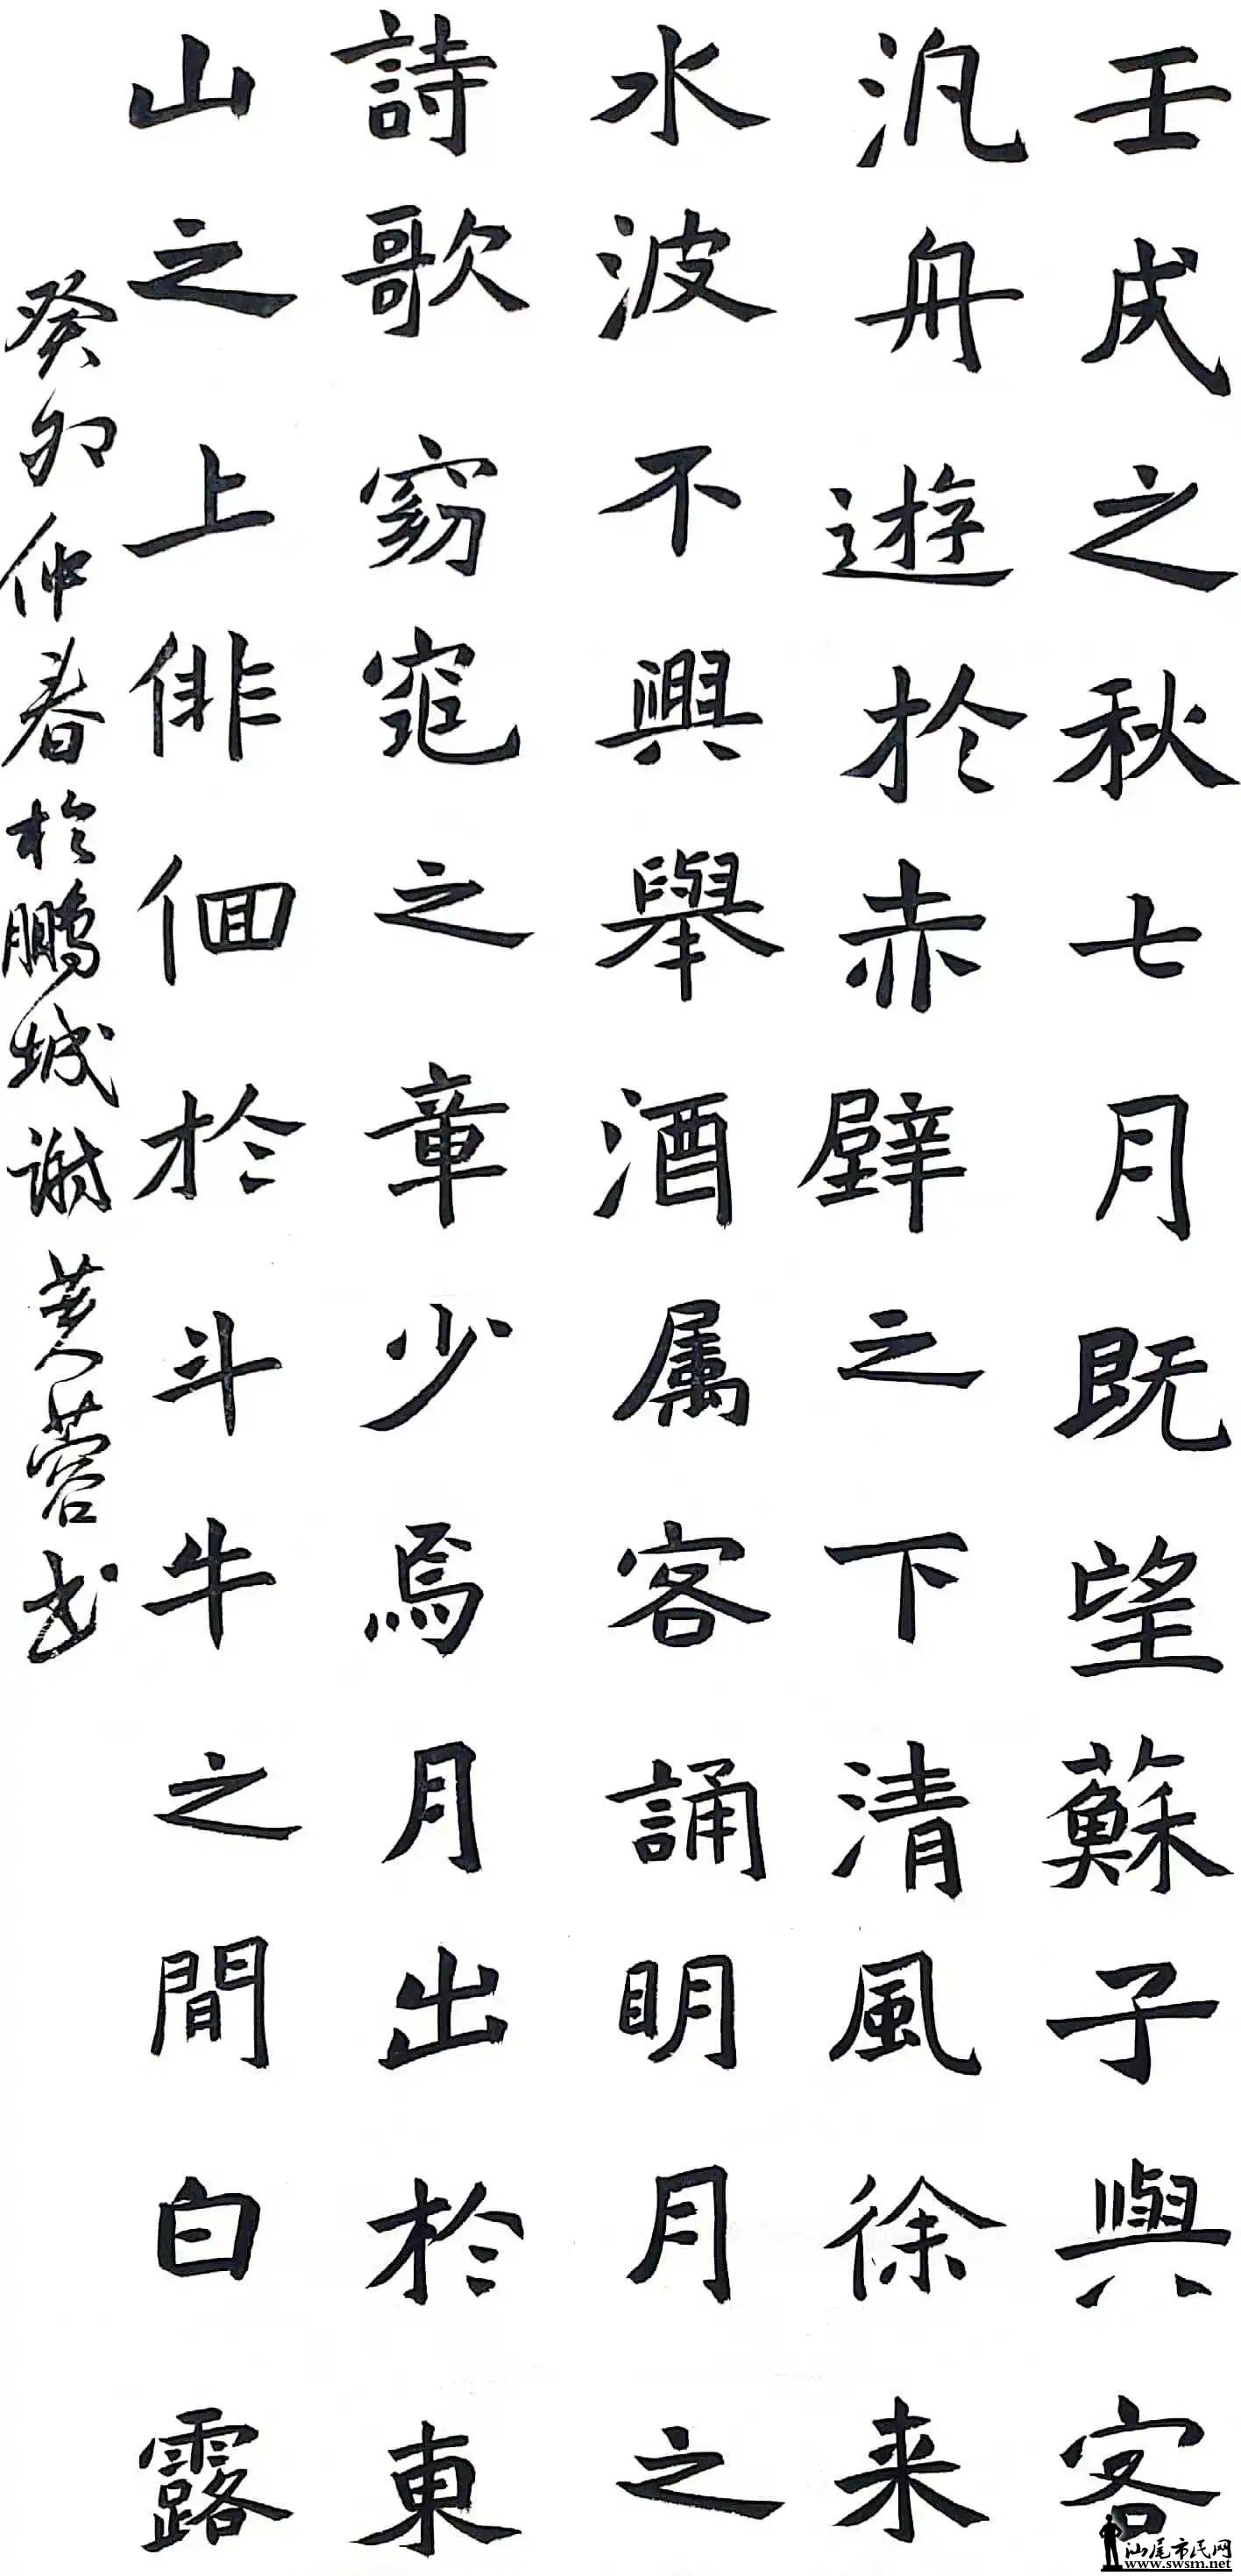 壬戌之秋七月既望蘇子與客
汎舟遊於赤壁之下清風徐来
水波不興舉酒属客誦明月之
詩歌窈窕之章少焉月出於東
山之上俳佪於斗牛之間白露
癸卯仲春於鹏城谢芙蓉书
汕尾市民网
www.swsm.net